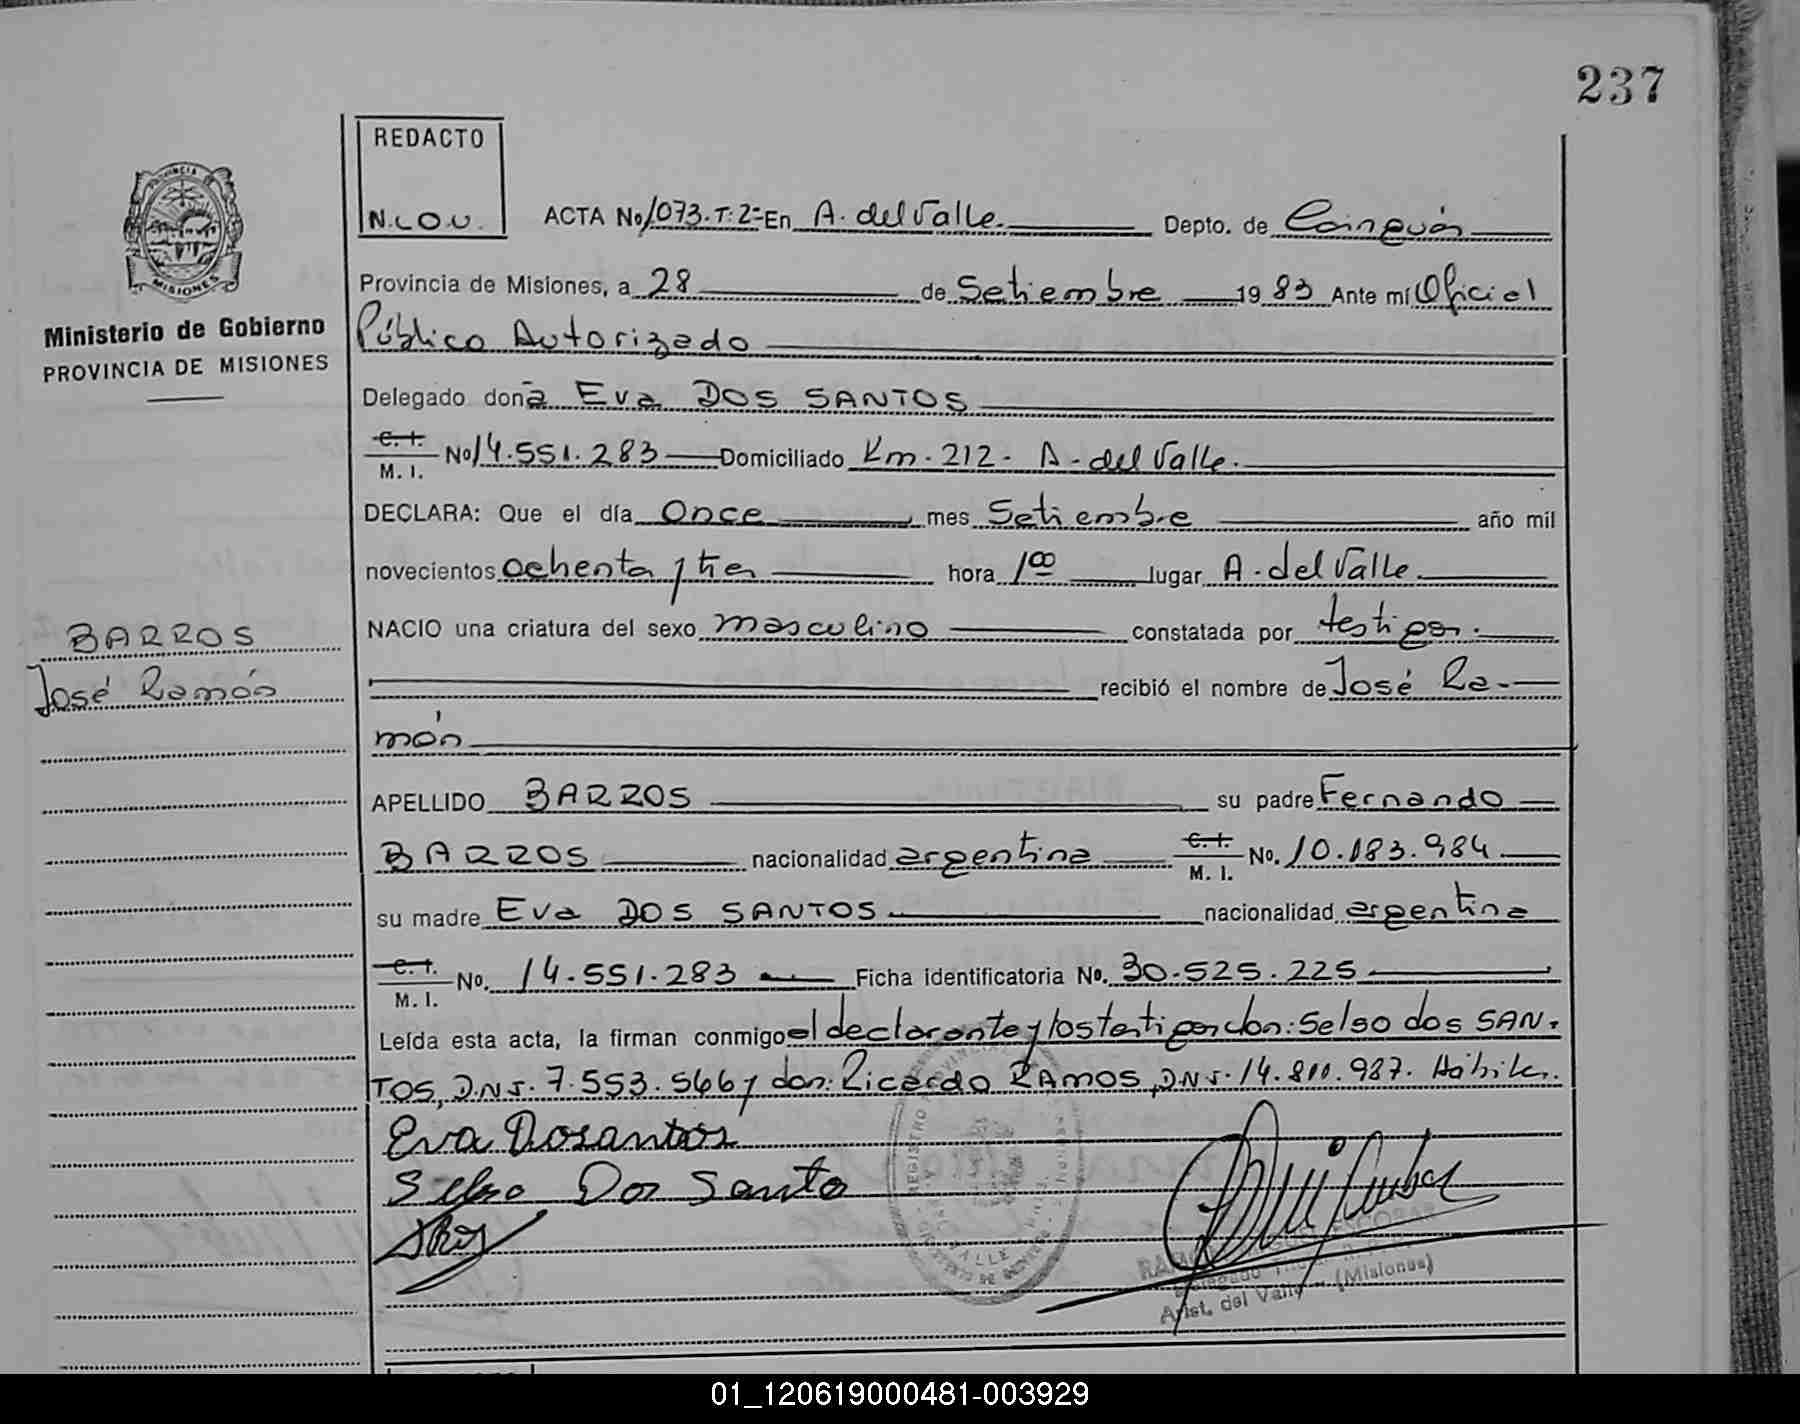 237
REDACTO
N.L.O.U.
PROVINCIA DE
MISIONES
Ministerio de Gobierno
PROVINCIA DE MISIONES
BARROS
José Ramón
ACTA No 1073.T:2= En A. del Valle. Depto. de Cainguás
Provincia de Misiones, a 28 de Setiembre 1983 Ante mí Oficial
Público Autorizado
Delegado doña Eva DOS SANTOS
C. I. M. I. No 14.551.283 Domiciliado Km. 212. A. del Valle.
DECLARA: Que el día Once mes Setiembre año mil
novecientos ochenta y tres hora 1 00 lugar A. del Valle.
NACIO una criatura del sexo masculino constatada por testigos.
recibió el nombre de José Ra-
món
APELLIDO BARROS su padre Fernando
BARROS nacionalidad argentina C. I. M. I. No. 10.183.984
su madre Eva DOS SANTOS nacionalidad argentina
C. I. M. I. No. 14.551.283 Ficha identificatoria No. 30.525.225
Leída esta acta, la firman conmigo el declarante y los testigos don: Selso dos SAN-
TOS, D.N.I. 7.553.566 y don: Ricardo RAMOS, D.N.I. 14.811.987. Hábiles.
Eva Dosantos
Selso Dos Santo
ESCOBAR
Delegado
Arist. del Valle (Misiones)
01_120619000481-003929